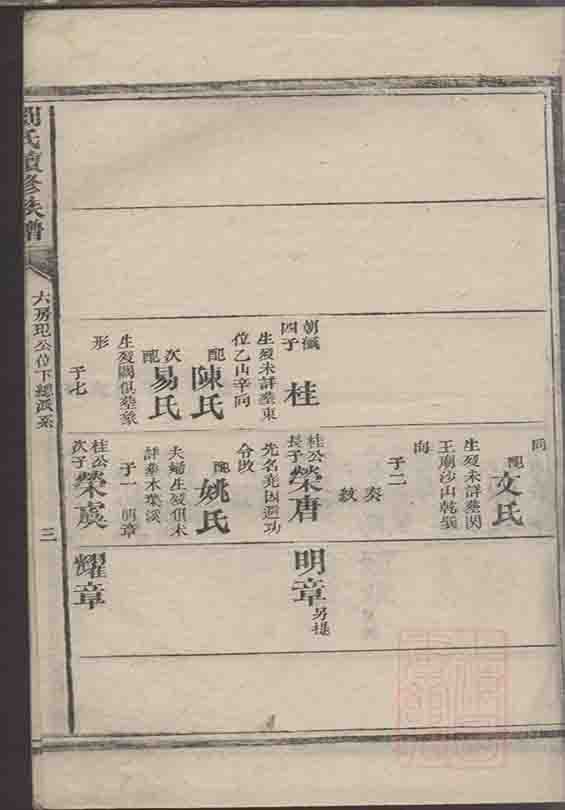 劉氏續修族譜
六房玘公位下總派系
三
朝瓛
四子
桂
生歿未詳塋東
位乙山辛向
配
陳氏
次
配
易氏
生歿闕俱塋象
形
子七
向
配
文氏
生歿未詳塋関
王廟沙山乾巽
向
子二
奏
敘
桂公
長子
榮唐
先名堯因避功
令改
配
姚氏
夫婦生歿俱未
詳塋木葉溪
子一 明章
桂公
次子
榮虞
明章
另提
耀章